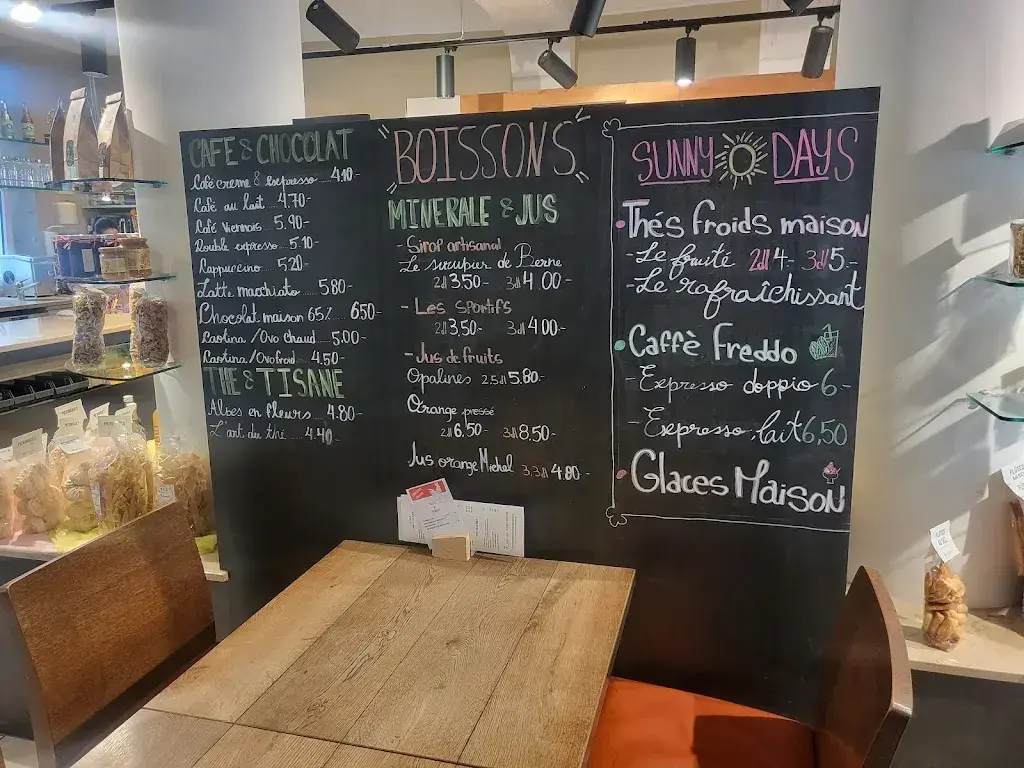 CAFE & CHOCOLAT
Café creme & expresso....4.10-
Café au lait....4.70-
Café Viennois...5.90-
Double expresso...5.10-
Cappuccino....5,20-
Latte macchiato....5.80-
Chocolat maison 65%..650-
Caotina /Ovo chaud...5.00-
Caotina /Ovofroid...4.50-
THE & TISANE
Alpes en fleurs....4.80-
L'art du thé.....4.40-
BOISSONS
MINERALE & JUS
- Sirop artisanal
Le sirupier de Berne
2dl 3.50- 3dl 4.00-
- Les Sportifs
2dl 3,50- 3dl 4.00-
- Jus de fruits
Opalines 2.5dl 5.80-
Orange pressé
2dl 6.50- 3dl 8.50-
Jus orange Michel 3,3dl 4.80-
SUNNY DAYS
• Thés froids maison
- Le fruité 2dl 4- 3dl 5-
- Le rafraîchissant
• Caffè Freddo
- Expresso doppio 6-
- Expresso, lait 6,50
• Glaces Maison